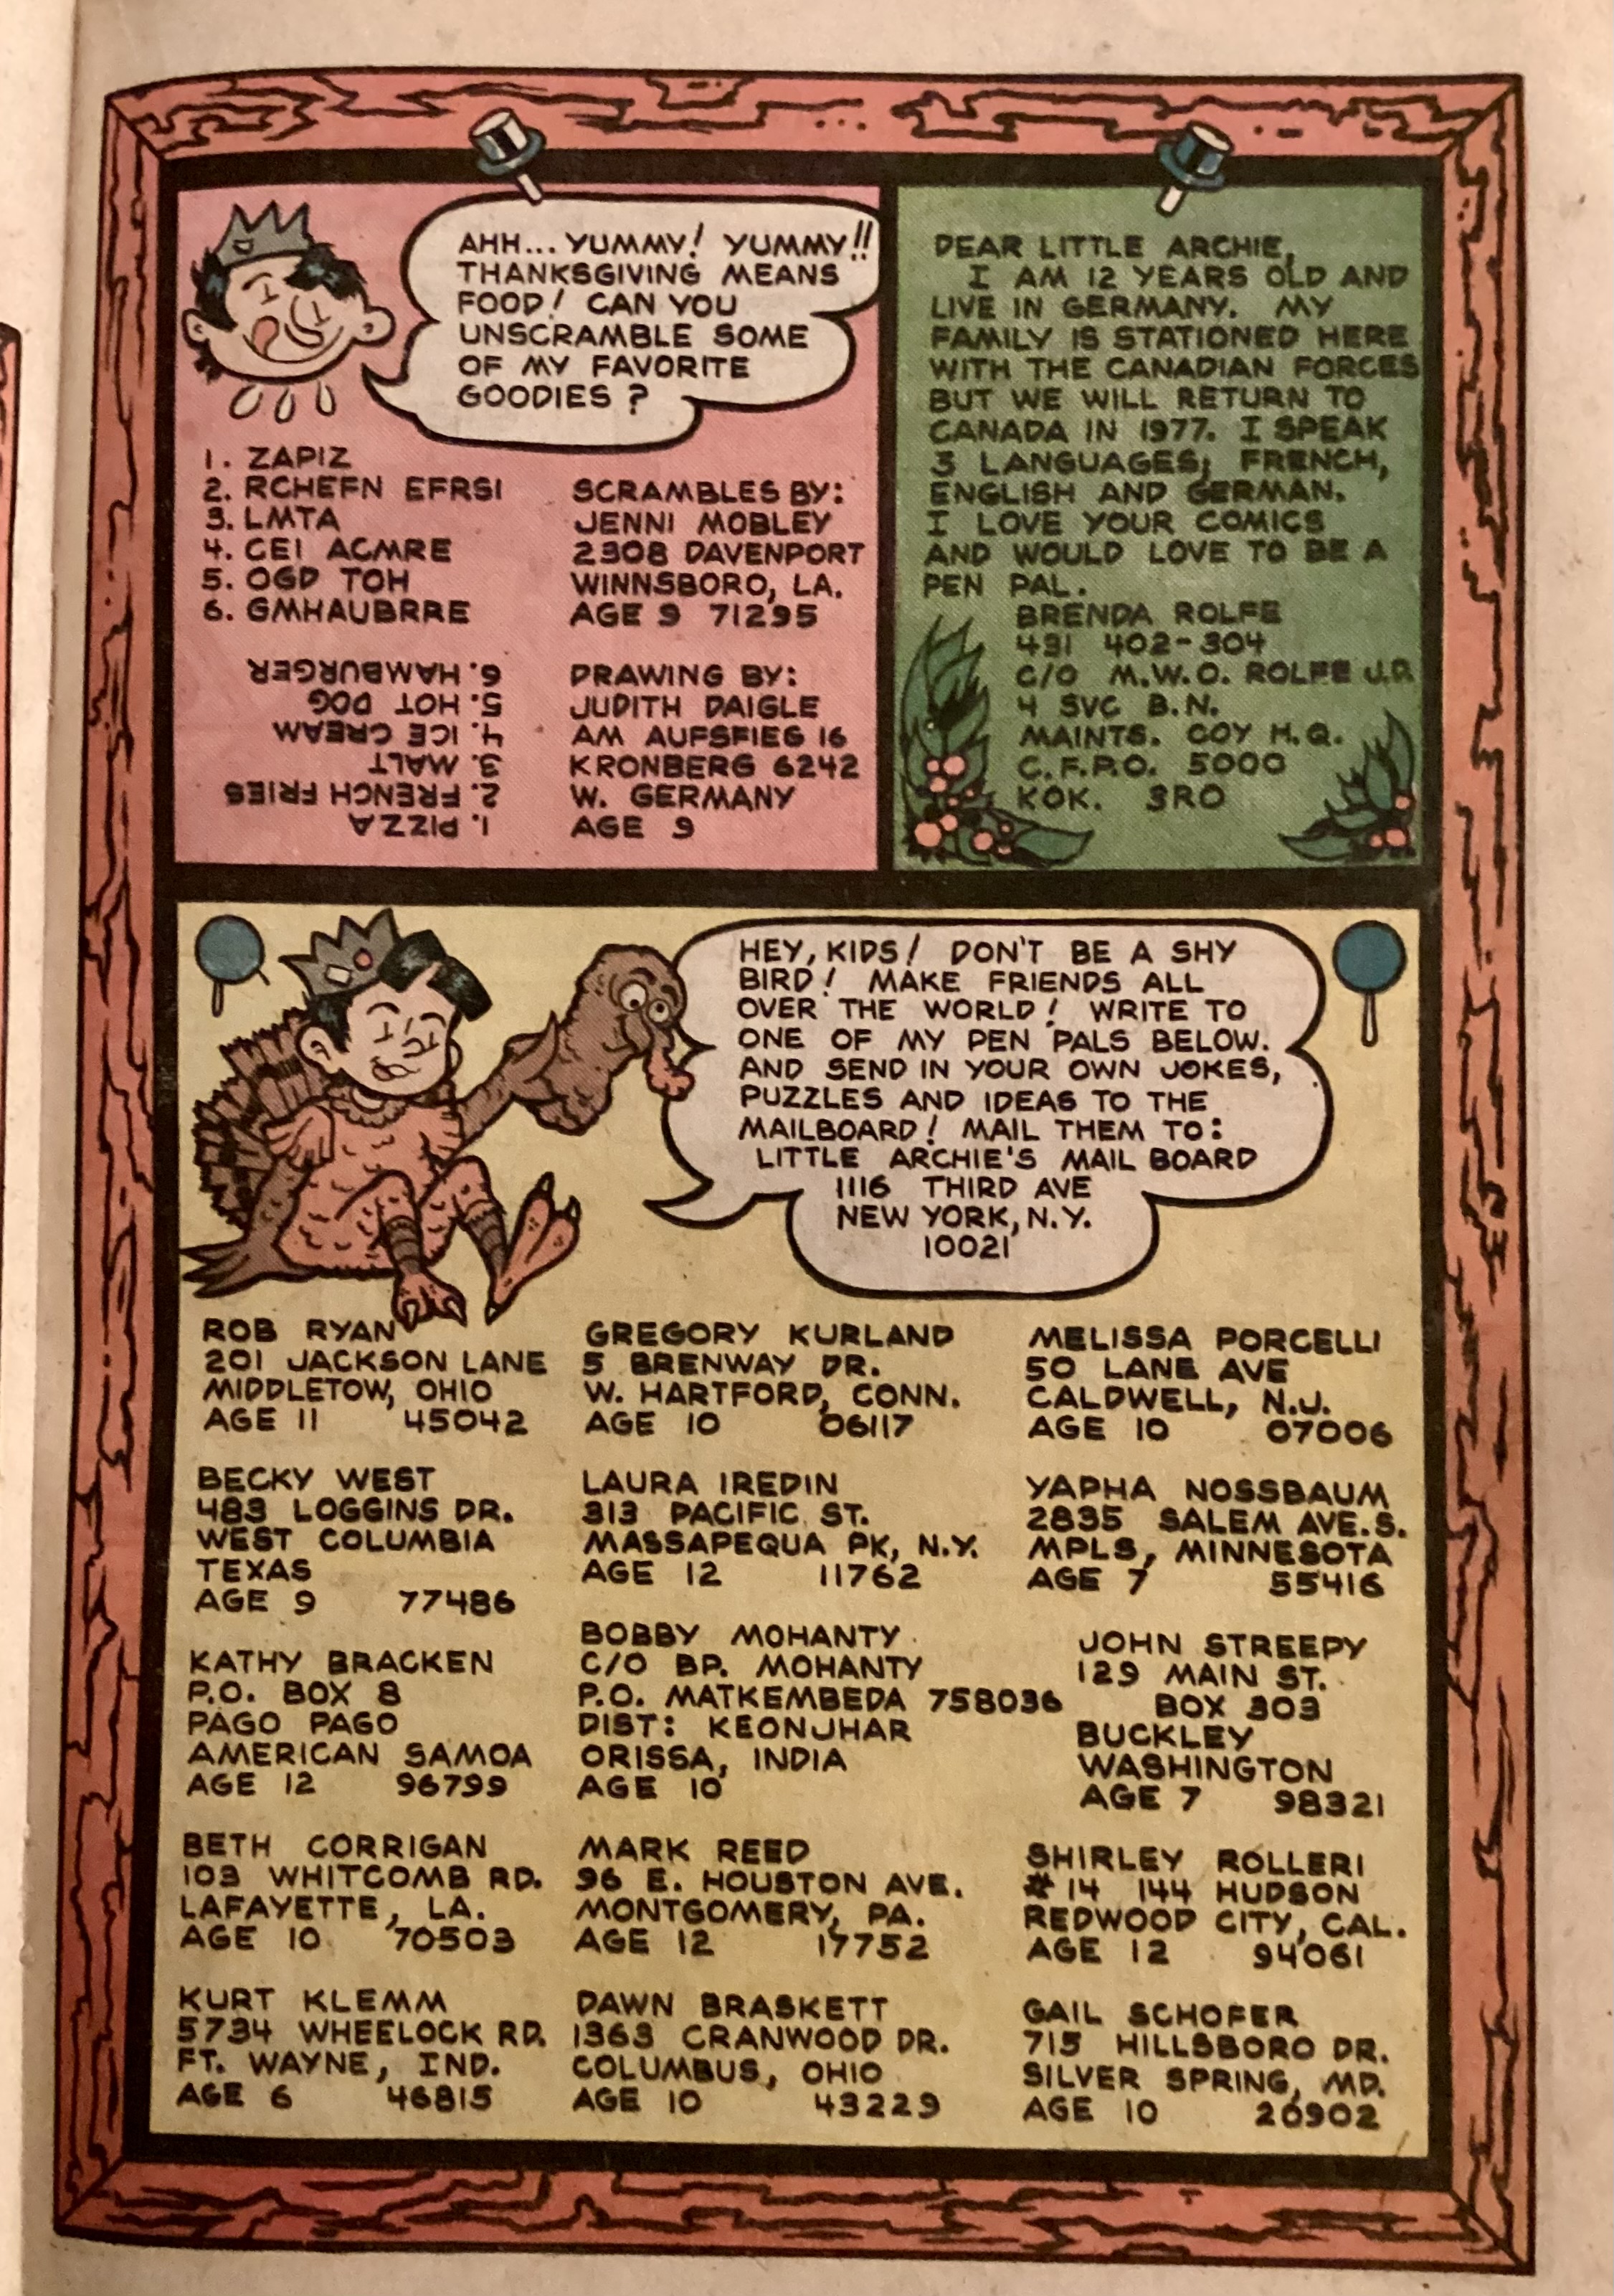 AHH... YUMMY! YUMMY!!
THANKSGIVING MEANS
FOOD! CAN YOU
UNSCRAMBLE SOME
OF MY FAVORITE
GOODIES?
1. ZAPIZ
2. RCHEFN EFRSI
3. LMTA
4. CEI ACMRE
5. OGD TOH
6. GMHAUBRRE
SCRAMBLES BY:
JENNI MOBLEY
2308 DAVENPORT
WINNSBORO, LA.
AGE 9 71295
1. PIZZA
2. FRENCH FRIES
3. MALT
4. ICE CREAM
5. HOT DOG
6. HAMBURGER
DRAWING BY:
JUDITH DAIGLE
AM AUFSFIEG 16
KRONBERG 6242
W. GERMANY
AGE 9
DEAR LITTLE ARCHIE,
I AM 12 YEARS OLD AND
LIVE IN GERMANY. MY
FAMILY IS STATIONED HERE
WITH THE CANADIAN FORCES
BUT WE WILL RETURN TO
CANADA IN 1977. I SPEAK
3 LANGUAGES; FRENCH,
ENGLISH AND GERMAN.
I LOVE YOUR COMICS
AND WOULD LOVE TO BE A
PEN PAL.
BRENDA ROLFE
431 402-304
C/O M.W.O. ROLFE J.D.
4 SVC B.N.
MAINTS. COY H.Q.
C.F.P.O. 5000
KOK. 3RO
HEY, KIDS! DON'T BE A SHY
BIRD! MAKE FRIENDS ALL
OVER THE WORLD! WRITE TO
ONE OF MY PEN PALS BELOW.
AND SEND IN YOUR OWN JOKES,
PUZZLES AND IDEAS TO THE
MAILBOARD! MAIL THEM TO:
LITTLE ARCHIE'S MAIL BOARD
1116 THIRD AVE
NEW YORK, N.Y.
10021
ROB RYAN
201 JACKSON LANE
MIDDLETOW, OHIO
AGE 11 45042
BECKY WEST
483 LOGGINS DR.
WEST COLUMBIA
TEXAS
AGE 9 77486
KATHY BRACKEN
P.O. BOX 8
PAGO PAGO
AMERICAN SAMOA
AGE 12 96799
BETH CORRIGAN
103 WHITCOMB RD.
LAFAYETTE, LA.
AGE 10 70503
KURT KLEMM
5734 WHEELOCK RD.
FT. WAYNE, IND.
AGE 6 46815
GREGORY KURLAND
5 BRENWAY DR.
W. HARTFORD, CONN.
AGE 10 06117
LAURA IREDIN
313 PACIFIC ST.
MASSAPEQUA PK, N.Y.
AGE 12 11762
BOBBY MOHANTY
C/O BP. MOHANTY
P.O. MATKEMBEDA 758036
DIST: KEONJHAR
ORISSA, INDIA
AGE 10
MARK REED
96 E. HOUSTON AVE.
MONTGOMERY, PA.
AGE 12 17752
DAWN BRASKETT
1363 CRANWOOD DR.
COLUMBUS, OHIO
AGE 10 43229
MELISSA PORCELLI
50 LANE AVE
CALDWELL, N.J.
AGE 10 07006
YAPHA NOSSBAUM
2835 SALEM AVE.S.
MPLS, MINNESOTA
AGE 7 55416
JOHN STREEPY
129 MAIN ST.
BOX 303
BUCKLEY
WASHINGTON
AGE 7 98321
SHIRLEY ROLLERI
#14 144 HUDSON
REDWOOD CITY, CAL.
AGE 12 94061
GAIL SCHOFER
715 HILLSBORO DR.
SILVER SPRING, MD.
AGE 10 20902